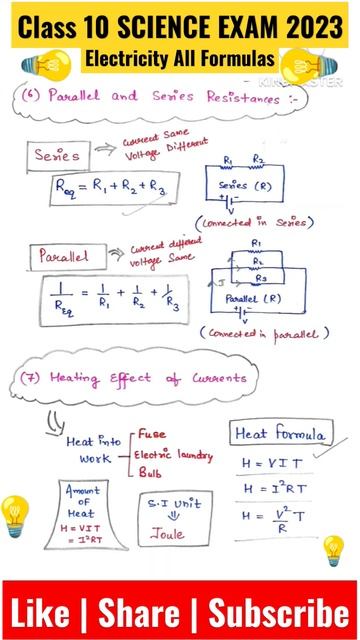 Class 10 SCIENCE EXAM 2023
Electricity All Formulas
(6) Parallel and Series Resistances :-
Series
Current Same
Voltage Different
Req = R₁ + R₂ + R₃
R₁ R₂
Series (R)
+ -
V
(Connected in Series)
Parallel
Current different
Voltage Same
1/REq = 1/R₁ + 1/R₂ + 1/R₃
R₁
R₂
R₃
I
Parallel (R)
+ -
V
(Connected in parallel)
(7) Heating Effect of Currents
Heat into
work
Fuse
Electric laundry
Bulb
Heat Formula
H = VIT
H = I²RT
H = V²/R T
Amount
of
Heat
H = VIT
= I²RT
S.I unit
⇓
Joule
Like | Share | Subscribe